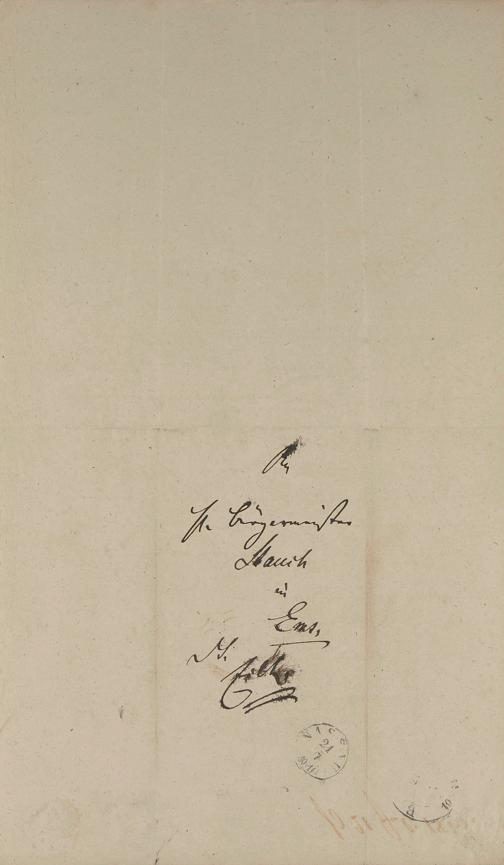 An
H. Bürgermeister
Stauch
in
Ems.
D. S.
Eilt.
NASSAU
21
7